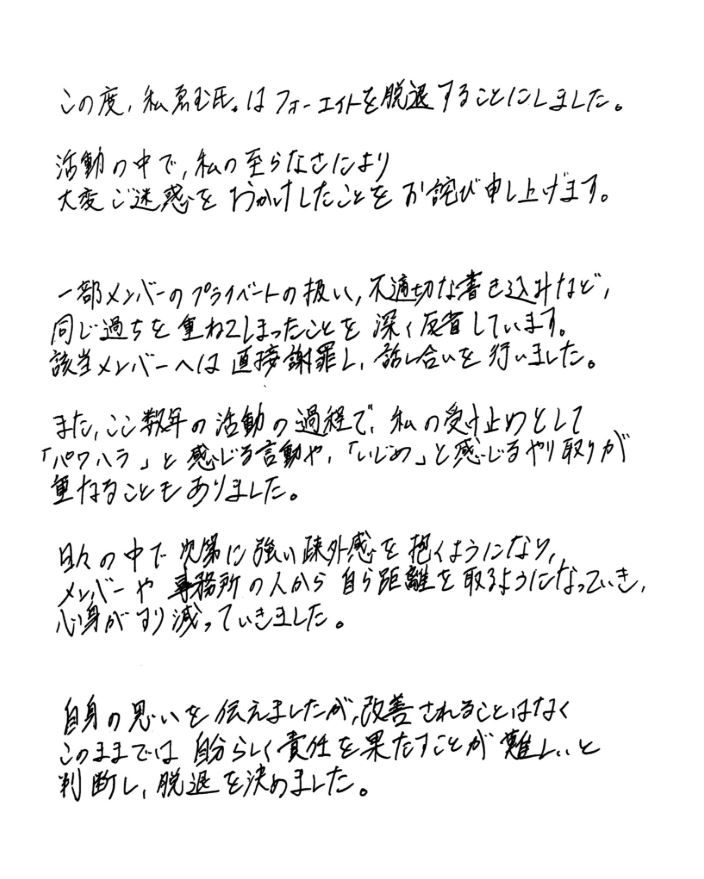 この度,私恵む氏。はフォーエイトを脱退することにしました。
活動の中で,私の至らなさにより
大変ご迷惑をおかけしたことをお詫び申し上げます。
一部メンバーのプライベートの扱い,不適切な書き込みなど,
同じ過ちを重ねてしまったことを深く反省しています。
該当メンバーへは直接謝罪し,話し合いを行いました。
また,ここ数年の活動の過程で,私の受け止めとして
「パワハラ」と感じる言動や,「いじめ」と感じるやり取りが
重なることもありました。
日々の中で次第に強い疎外感を抱くようになり,
メンバーや事務所の人から自ら距離を取るようになっていき,
心身がすり減っていきました。
自身の思いを伝えましたが,改善されることはなく
このままでは自分らしく責任を果たすことが難しいと
判断し,脱退を決めました。